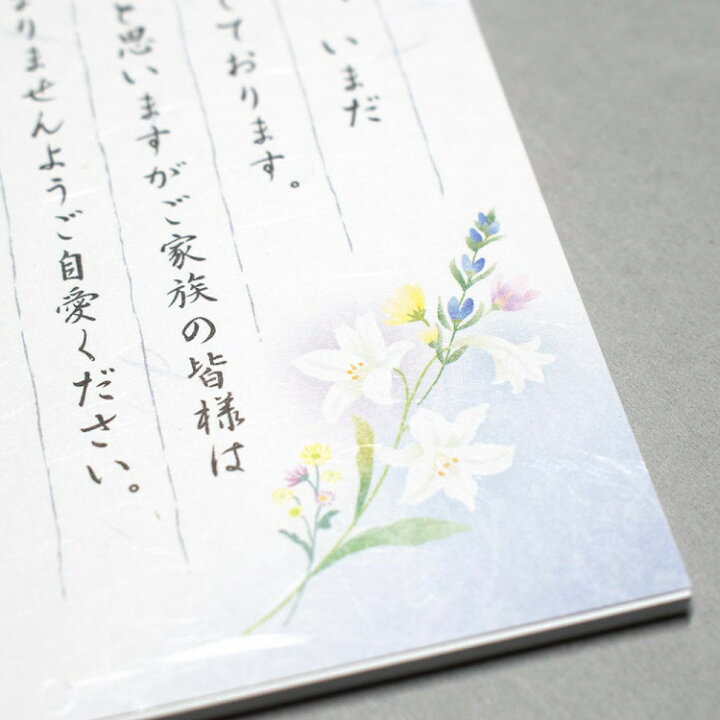 いまだ
しております。
と思いますがご家族の皆様は
なりませんようご自愛ください。